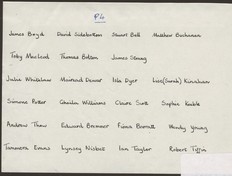 P4
James Boyd David Sidebottom Stuart Bell Matthew Buchanan
Toby MacLeod Thomas Botson James Strang
Julia Whitelaw Mairead Dewar Isla Dyer Lucy(Sarah) Kinnison
Simone Potter Ceilidh Williams Claire Scott Sophia Kable
Andrew Thaw Edward Bremner Fiona Barrett Wendy Young
Tamara Evans Lynsey Nisbett Ian Taylor Robert Tiffin